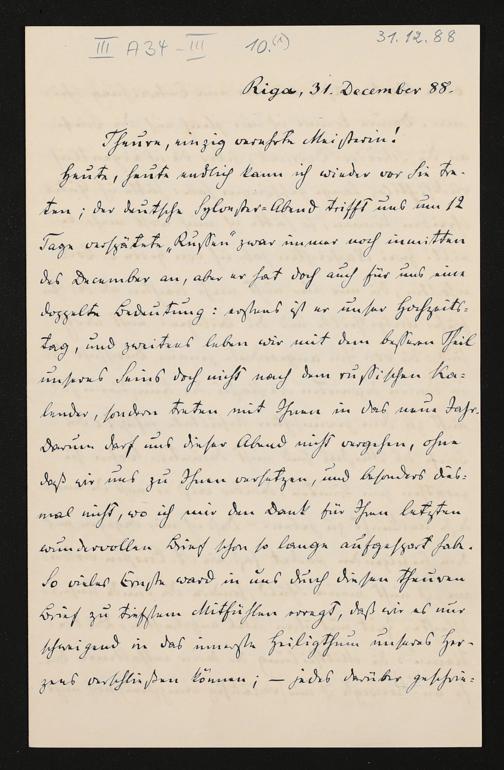 III A34 - III 10.(1) 31.12.88
Riga, 31. December 88.
Theure, einzig verehrte Meisterin!
Heute, heute endlich kann ich wieder vor Sie tre-
ten; der deutsche Sylvester-Abend trifft uns um 12
Tage verspätete „Russen“ zwar immer noch inmitten
des December an, aber er hat doch auch für uns eine
doppelte Bedeutung: erstens ist er unser Hochzeits-
tag, und zweitens leben wir mit dem besseren Theil
unseres Seins doch nicht nach dem russischen Ka-
lender, sondern treten mit Ihnen in das neue Jahr.
Darum darf uns dieser Abend nicht vergehen, ohne
daß wir uns zu Ihnen versetzen, und besonders dies-
mal nicht, wo ich mir den Dank für Ihren letzten
wundervollen Brief schon so lange aufgespart habe.
So vieles Ernste ward in uns durch diesen theuren
Brief zu tiefstem Mitfühlen erregt, daß wir es nur
schweigend in das innerste Heiligthum unseres Her-
zens verschließen können; — jedes darüber geschrie-